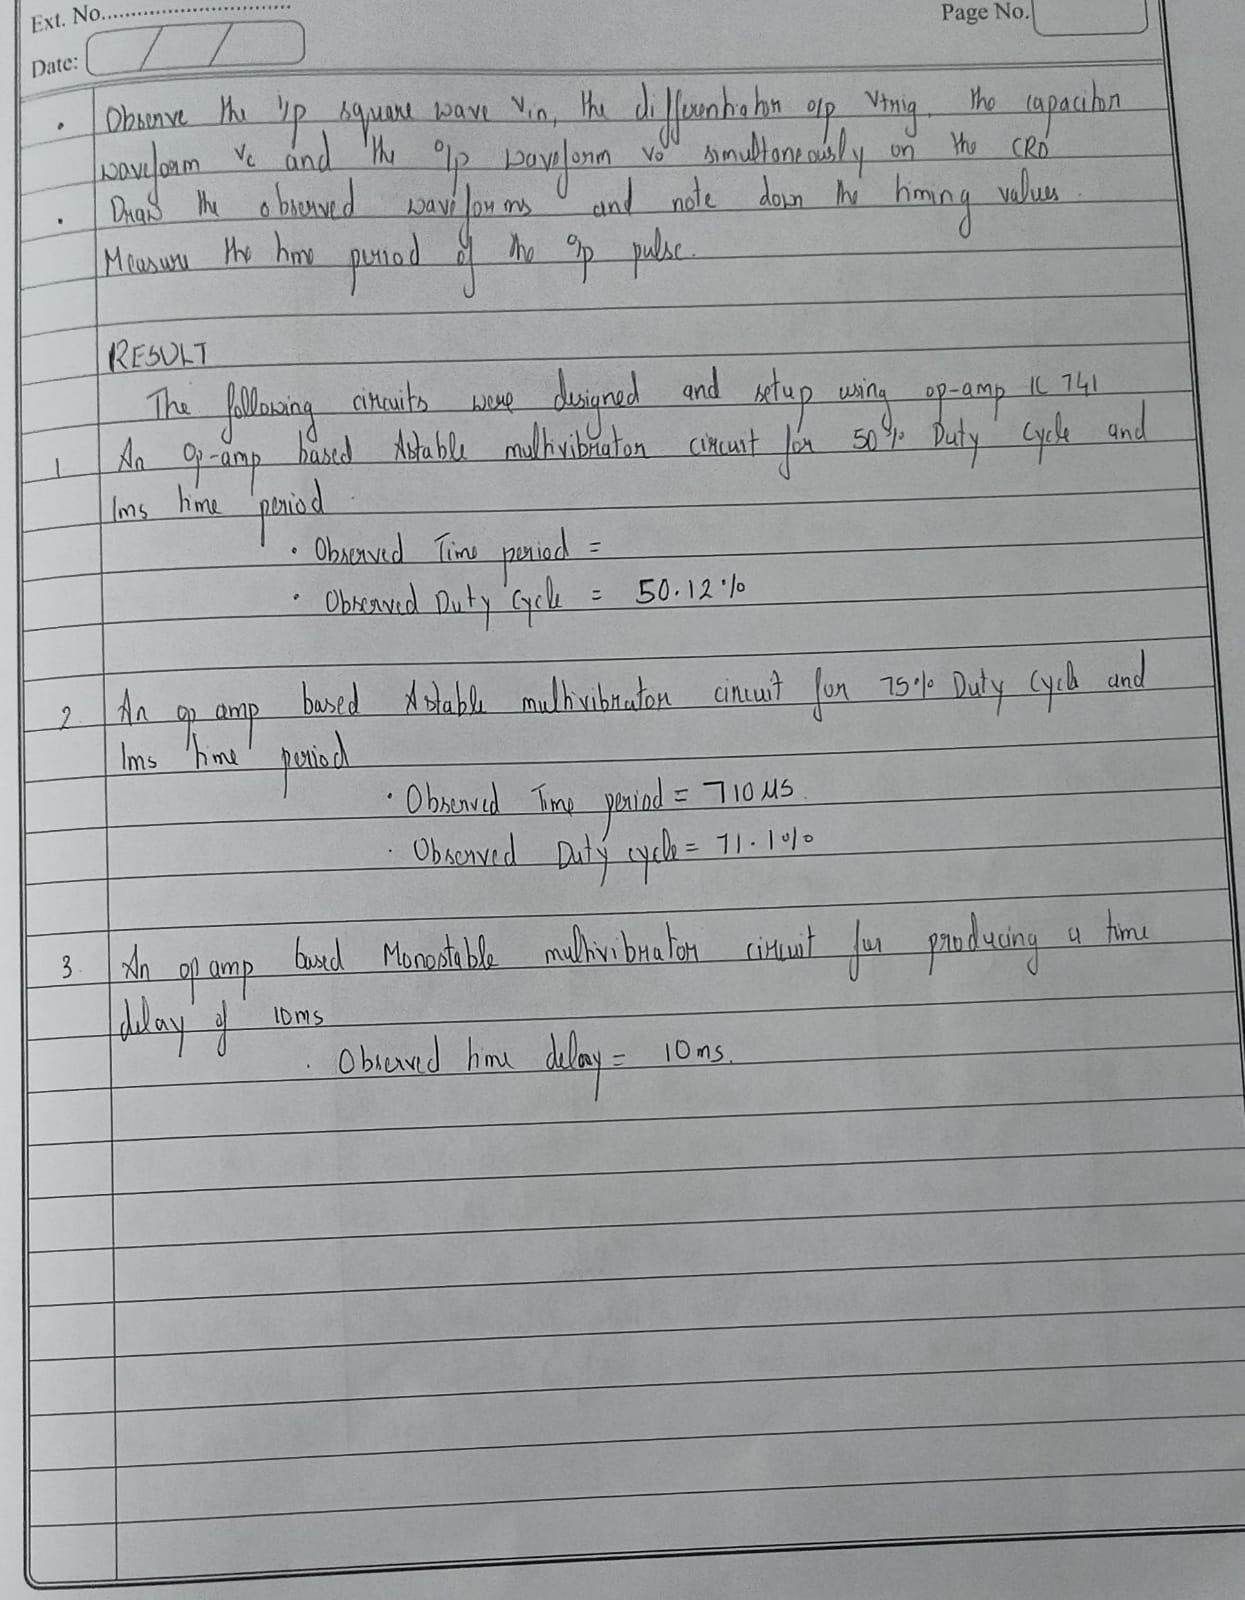 Ext. No.
Page No.
Date:
• Observe the i/p square wave Vin, the differentiator o/p Vtrig, the capacitor
waveform Vc and the o/p waveform Vo simultaneously on the CRO
• Draw the observed waveforms and note down the timing values.
Measure the time period of the o/p pulse.
RESULT
The following circuits were designed and setup using op-amp IC 741
1 An op-amp based Astable multivibrator circuit for 50% Duty Cycle and
1ms time period.
• Observed Time period =
• Observed Duty Cycle = 50.12%
2 An op amp based Astable multivibrator circuit for 75% Duty Cycle and
1ms time period
• Observed Time period = 710 μs.
• Observed Duty cycle = 71.1%
3. An op amp based Monostable multivibrator circuit for producing a time
delay of 10ms
• Observed time delay = 10ms.